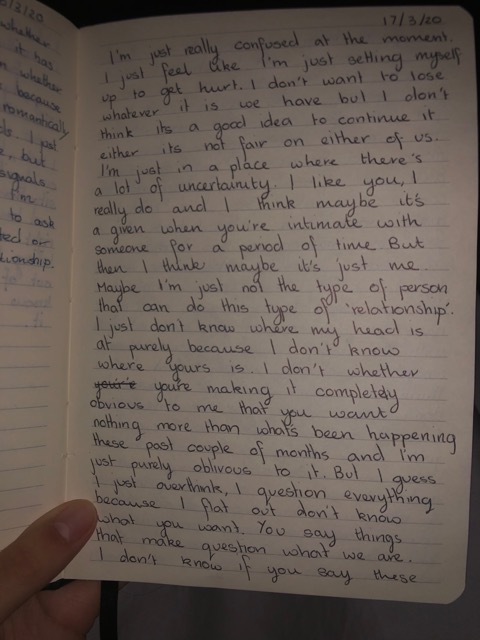 /3/20
whether
it has
whether
because
romantically
I just
, but
signals
I'm
to ask
or
17/3/20
I'm just really confused at the moment.
I just feel like I'm just setting myself
up to get hurt. I don't want to lose
whatever it is we have but I don't
think its a good idea to continue it
either its not fair on either of us.
I'm just in a place where there's
a lot of uncertainity. I like you, I
really do and I think maybe it's
a given when you're intimate with
someone for a period of time. But
then I think maybe it's just me.
Maybe I'm just not the type of person
that can do this type of 'relationship'.
I just don't know where my head is
at purely because I don't know
where yours is. I don't whether
your'e you're making it completely
obvious to me that you want
nothing more than whats been happening
these past couple of months and I'm
just purely oblivous to it. But I guess
I just overthink, I question everything
because I flat out don't know
what you want. You say things
that make question what we are.
I don't know if you say these